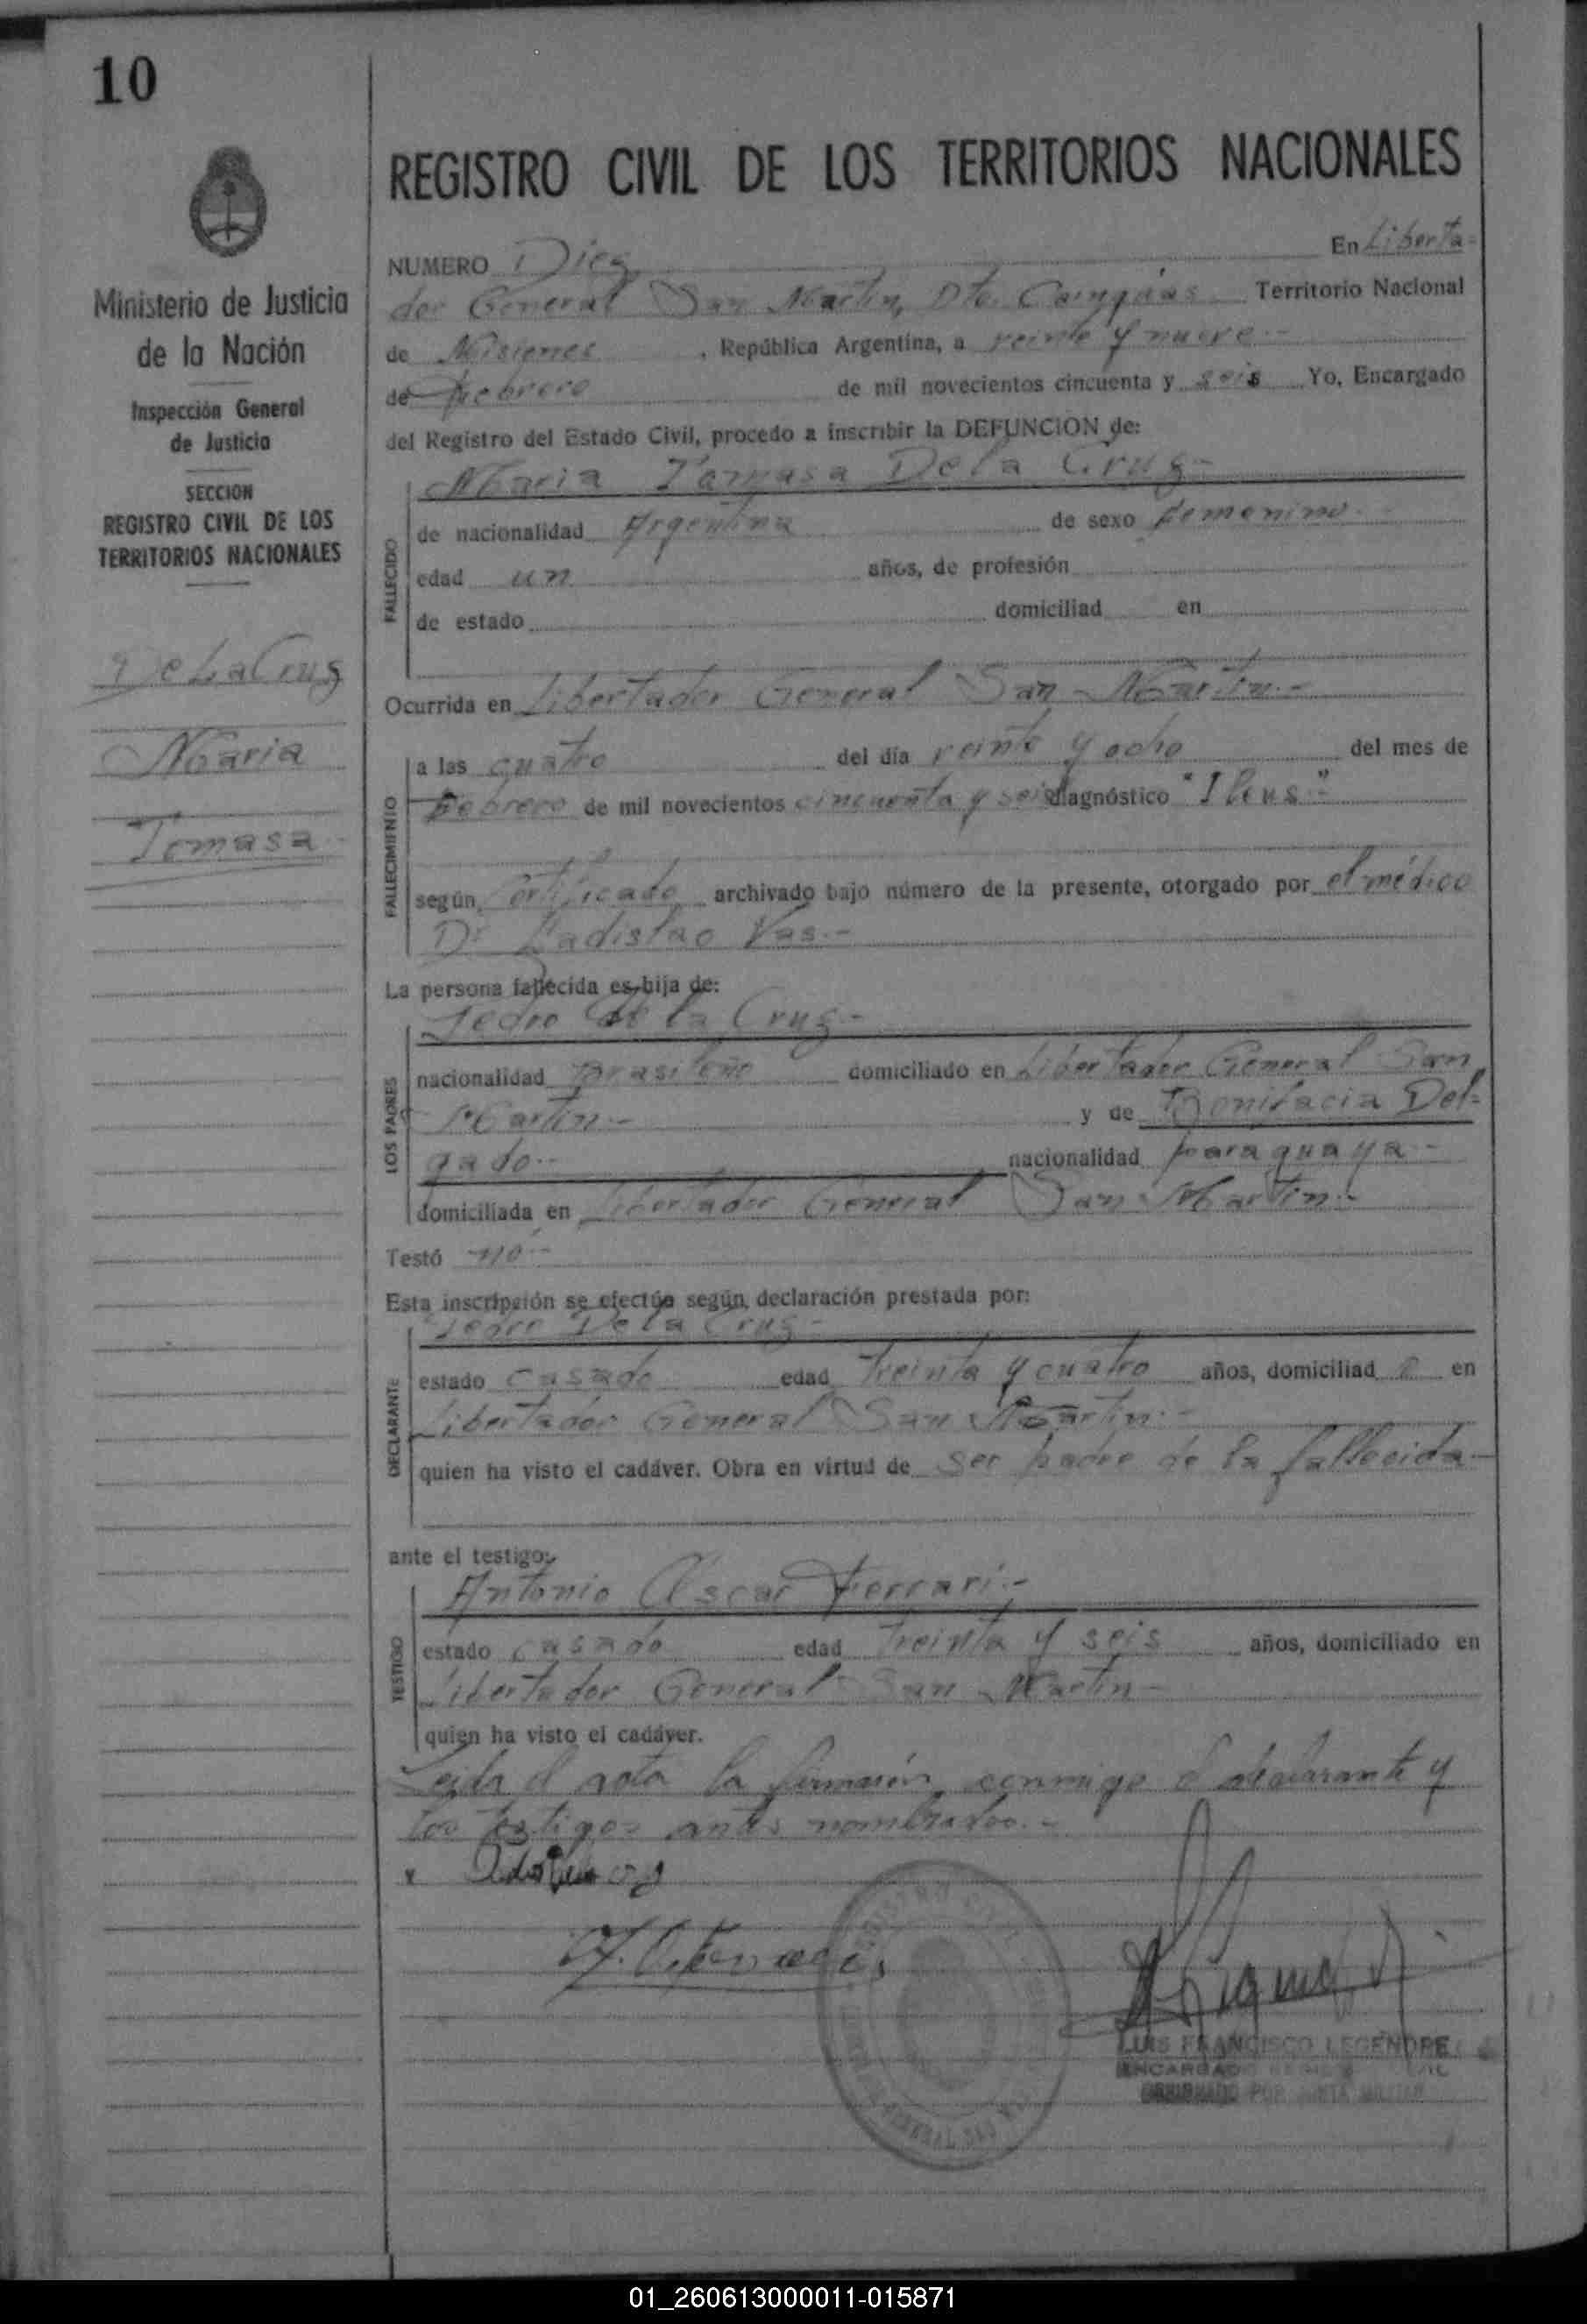 10
REGISTRO CIVIL DE LOS TERRITORIOS NACIONALES
Ministerio de Justicia
de la Nación
Inspección General
de Justicia
SECCION
REGISTRO CIVIL DE LOS
TERRITORIOS NACIONALES
De La Cruz
Maria
Tomasa
NUMERO Diez En Liberta-
dor General San Martin, Dto. Cainguás Territorio Nacional
de Misiones, República Argentina, a veinte y nueve.-
de Febrero de mil novecientos cincuenta y seis Yo, Encargado
del Registro del Estado Civil, procedo a inscribir la DEFUNCION de:
Maria Tomasa De la Cruz-
FALLECIDO
de nacionalidad Argentina de sexo femenino.-
edad un años, de profesión
de estado domiciliad en
Ocurrida en Libertador General San Martin.-
FALLECIMIENTO
a las cuatro del día veinte y ocho del mes de
Febrero de mil novecientos cincuenta y seis diagnóstico "Ileus"
según Certificado archivado bajo número de la presente, otorgado por el médico
Dr Ladislao Vas.-
La persona fallecida es hija de:
LOS PADRES
Pedro De la Cruz-
nacionalidad brasileño domiciliado en Libertador General San
Martin.- y de Bonifacia Del-
gado.- nacionalidad paraguaya-
domiciliada en Libertador General San Martin.-
Testó no.-
Esta inscripción se efectúa según declaración prestada por:
DECLARANTE
Pedro De la Cruz-
estado casado edad treinta y cuatro años, domiciliad o en
Libertador General San Martin.-
quien ha visto el cadáver. Obra en virtud de ser padre de la fallecida-
ante el testigo:
TESTIGO
Antonio Oscar Ferrari.-
estado casado edad treinta y seis años, domiciliado en
Libertador General San Martin-
quien ha visto el cadáver.
Leida el acta la firmaron conmigo el declarante y
los testigos antes nombrados.-
LUIS FRANCISCO LEGENDRE
ENCARGADO
01_260613000011-015871